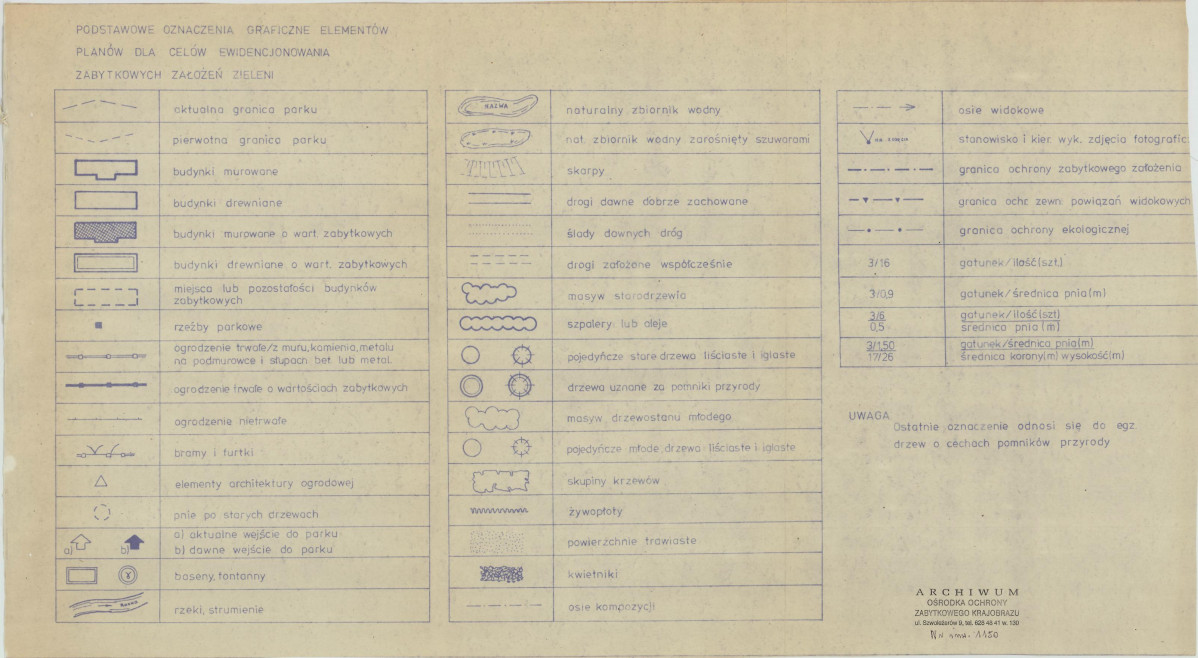 PODSTAWOWE OZNACZENIA GRAFICZNE ELEMENTÓW
PLANÓW DLA CELÓW EWIDENCJONOWANIA
ZABYTKOWYCH ZAŁOŻEŃ ZIELENI
aktualna granica parku
pierwotna granica parku
budynki murowane
budynki drewniane
budynki murowane o wart. zabytkowych
budynki drewniane o wart. zabytkowych
miejsca lub pozostałości budynków
zabytkowych
rzeźby parkowe
ogrodzenie trwałe/z muru, kamienia, metalu
na podmurówce i słupach bet. lub metal.
ogrodzenie trwałe o wartościach zabytkowych
ogrodzenie nietrwałe
bramy i furtki
elementy architektury ogrodowej
pnie po starych drzewach
a) b)
a) aktualne wejście do parku
b) dawne wejście do parku
baseny, fontanny
NAZWA
rzeki, strumienie
NAZWA
naturalny zbiornik wodny
nat. zbiornik wodny zarośnięty szuwarami
skarpy
drogi dawne dobrze zachowane
ślady dawnych dróg
drogi założone współcześnie
masyw starodrzewia
szpalery lub aleje
pojedyńcze stare drzewa liściaste i iglaste
drzewa uznane za pomniki przyrody
masyw drzewostanu młodego
pojedyńcze młode drzewa liściaste i iglaste
skupiny krzewów
żywopłoty
powierzchnie trawiaste
kwietniki
osie kompozycji
osie widokowe
stanowisko i kier. wyk. zdjęcia fotografic
granica ochrony zabytkowego założenia
granica ochr. zewn. powiązań widokowych
granica ochrony ekologicznej
3/16 gatunek/ilość(szt.)
3/0,9 gatunek/średnica pnia(m)
3/6 gatunek/ilość(szt)
0,5 średnica pnia(m)
3/1,50 gatunek/średnica pnia(m)
17/26 średnica korony(m) wysokość(m)
UWAGA
Ostatnie oznaczenie odnosi się do egz
drzew o cechach pomników przyrody
ARCHIWUM
OŚRODKA OCHRONY
ZABYTKOWEGO KRAJOBRAZU
ul. Szwoleżerów 9, tel. 628 48 41 w. 130
1150